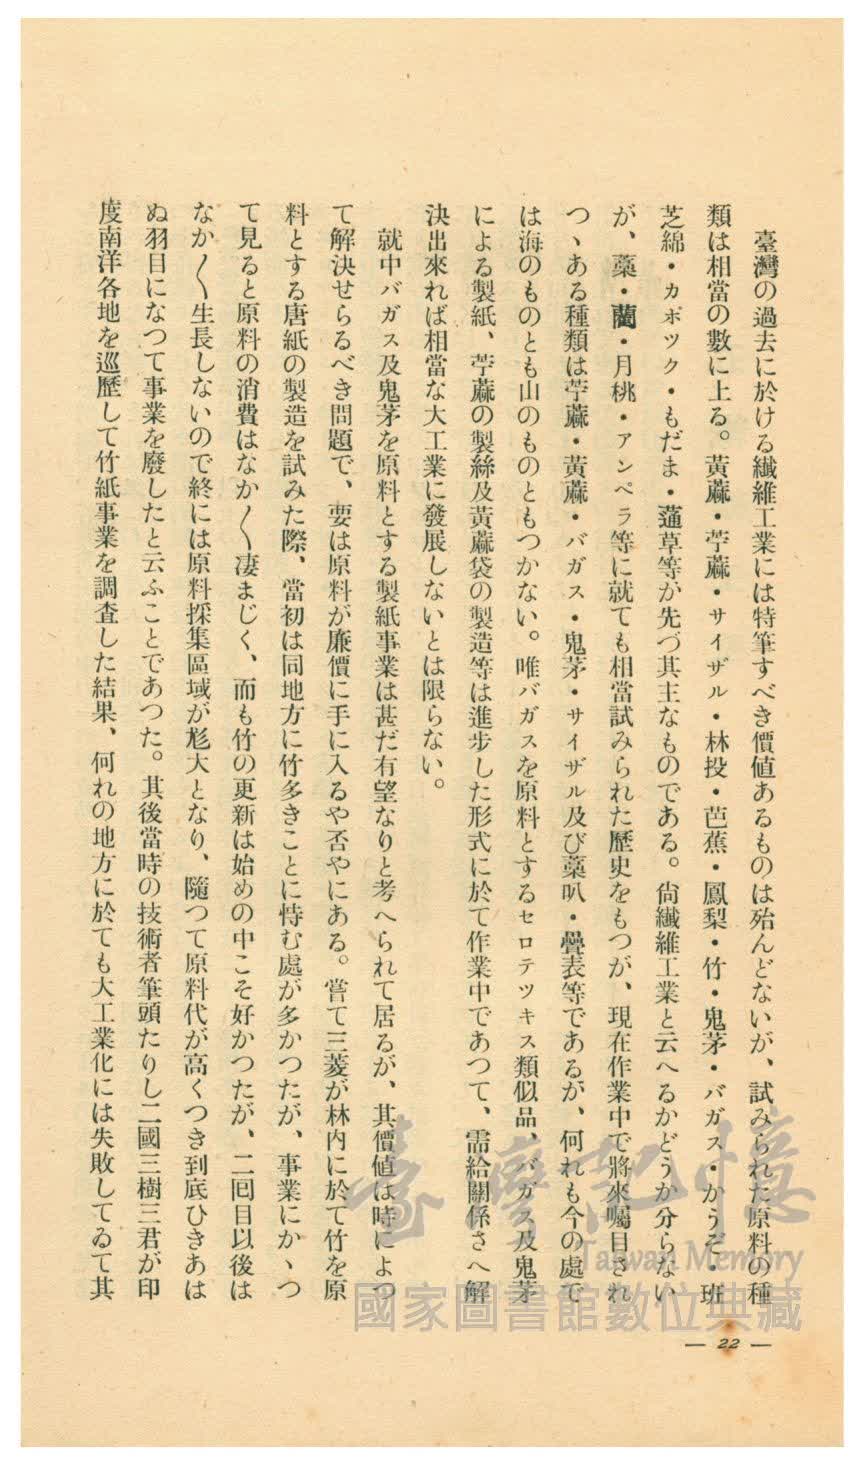 臺灣の過去に於ける纖維工業には特筆すべき價値あるものは殆んどないが、試みられた原料の種
類は相當の數に上る。黃蔴・苧蔴・サイザル・林投・芭蕉・鳳梨・竹・鬼茅・バガス・かうぞ・班
芝綿・カポツク・もだま・蓪草等が先づ其主なものである。尙纖維工業と云へるかどうか分らない
が、藁・藺・月桃・アンペラ等に就ても相當試みられた歷史をもつが、現在作業中で將來囑目され
つゝある種類は苧蔴・黃蔴・バガス・鬼茅・サイザル及び藁叺・疊表等であるが、何れも今の處で
は海のものとも山のものともつかない。唯バガスを原料とするセロテツキス類似品、バガス及鬼茅
による製紙、苧蔴の製絲及黃蔴袋の製造等は進步した形式に於て作業中であつて、需給關係さへ解
決出來れば相當な大工業に發展しないとは限らない。
就中バガス及鬼茅を原料とする製紙事業は甚だ有望なりと考へられて居るが、其價値は時によつ
て解決せらるべき問題で、要は原料が廉價に手に入るや否やにある。嘗て三菱が林內に於て竹を原
料とする唐紙の製造を試みた際、當初は同地方に竹多きことに恃む處が多かつたが、事業にかゝつ
て見ると原料の消費はなか〳〵凄まじく、而も竹の更新は始めの中こそ好かつたが、二囘目以後は
なか〳〵生長しないので終には原料採集區域が尨大となり、隨つて原料代が高くつき到底ひきあは
ぬ羽目になつて事業を廢したと云ふことであつた。其後當時の技術者筆頭たりし二國三樹三君が印
度南洋各地を巡歷して竹紙事業を調査した結果、何れの地方に於ても大工業化には失敗してゐて其
— 22 —
臺灣記憶
Taiwan Memory
國家圖書館數位典藏